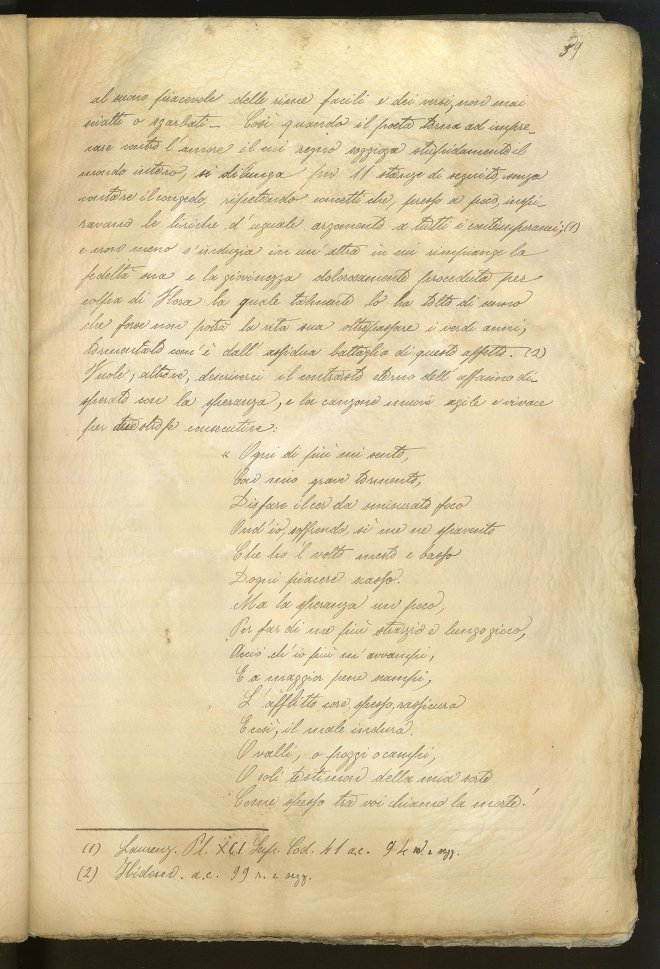 59
al suono piacevole delle rime facili e dei versi, non mai
scialti o sgarbati – Così quando il poeta torna ad impre-
care contro l'amore il cui regno soggioga stupidamente il
mondo intero, si dilunga per 11 stanze di seguito, senza
contare il congedo, ripetendo concetti che, presso a poco, inspi-
ravano le liriche d'uguale argomento a tutti i contemporanei; (1)
e non meno s'indugia in un'altra in cui rimpiange la
fedeltà sua e la giovinezza dolorosamente proceduta per
colpa di Flora la quale talmente lo ha tolto di senno
che forse non potrà la vita sua oltrepassare i verdi anni,
tormentato com'è dall'assidua battaglia di questo affetto. – (2)
Vuole, altrove, descriverci il contrasto eterno dell'affanno di-
sperato con la speranza, e la canzone muove agile e vivace
per due strofe consecutive:
« Ogni dì più mi sento,
Con mio grave tormento,
Disfare il cor da smisurato foco
Ond'io, soffrendo, sì me ne spavento
Che ho 'l volto mesto e basso
D'ogni piacere scasso.
Ma la speranza un poco,
Per far di me più strazio e lungo gioco,
Acciò ch'io più m'avvampi,
E a maggior pene scampi,
L'afflitto core, spesso, rassicura
E così, il male indura.
O valli, o poggi o campi,
O soli testimoni della mia sorte
Come spesso tra voi chiamo la morte!
(1) Laurenz. Pl. XCI Sup. Cod. 41 a c. 94 v. e segg.
(2) Ibidem. a c. 99 r. e segg.